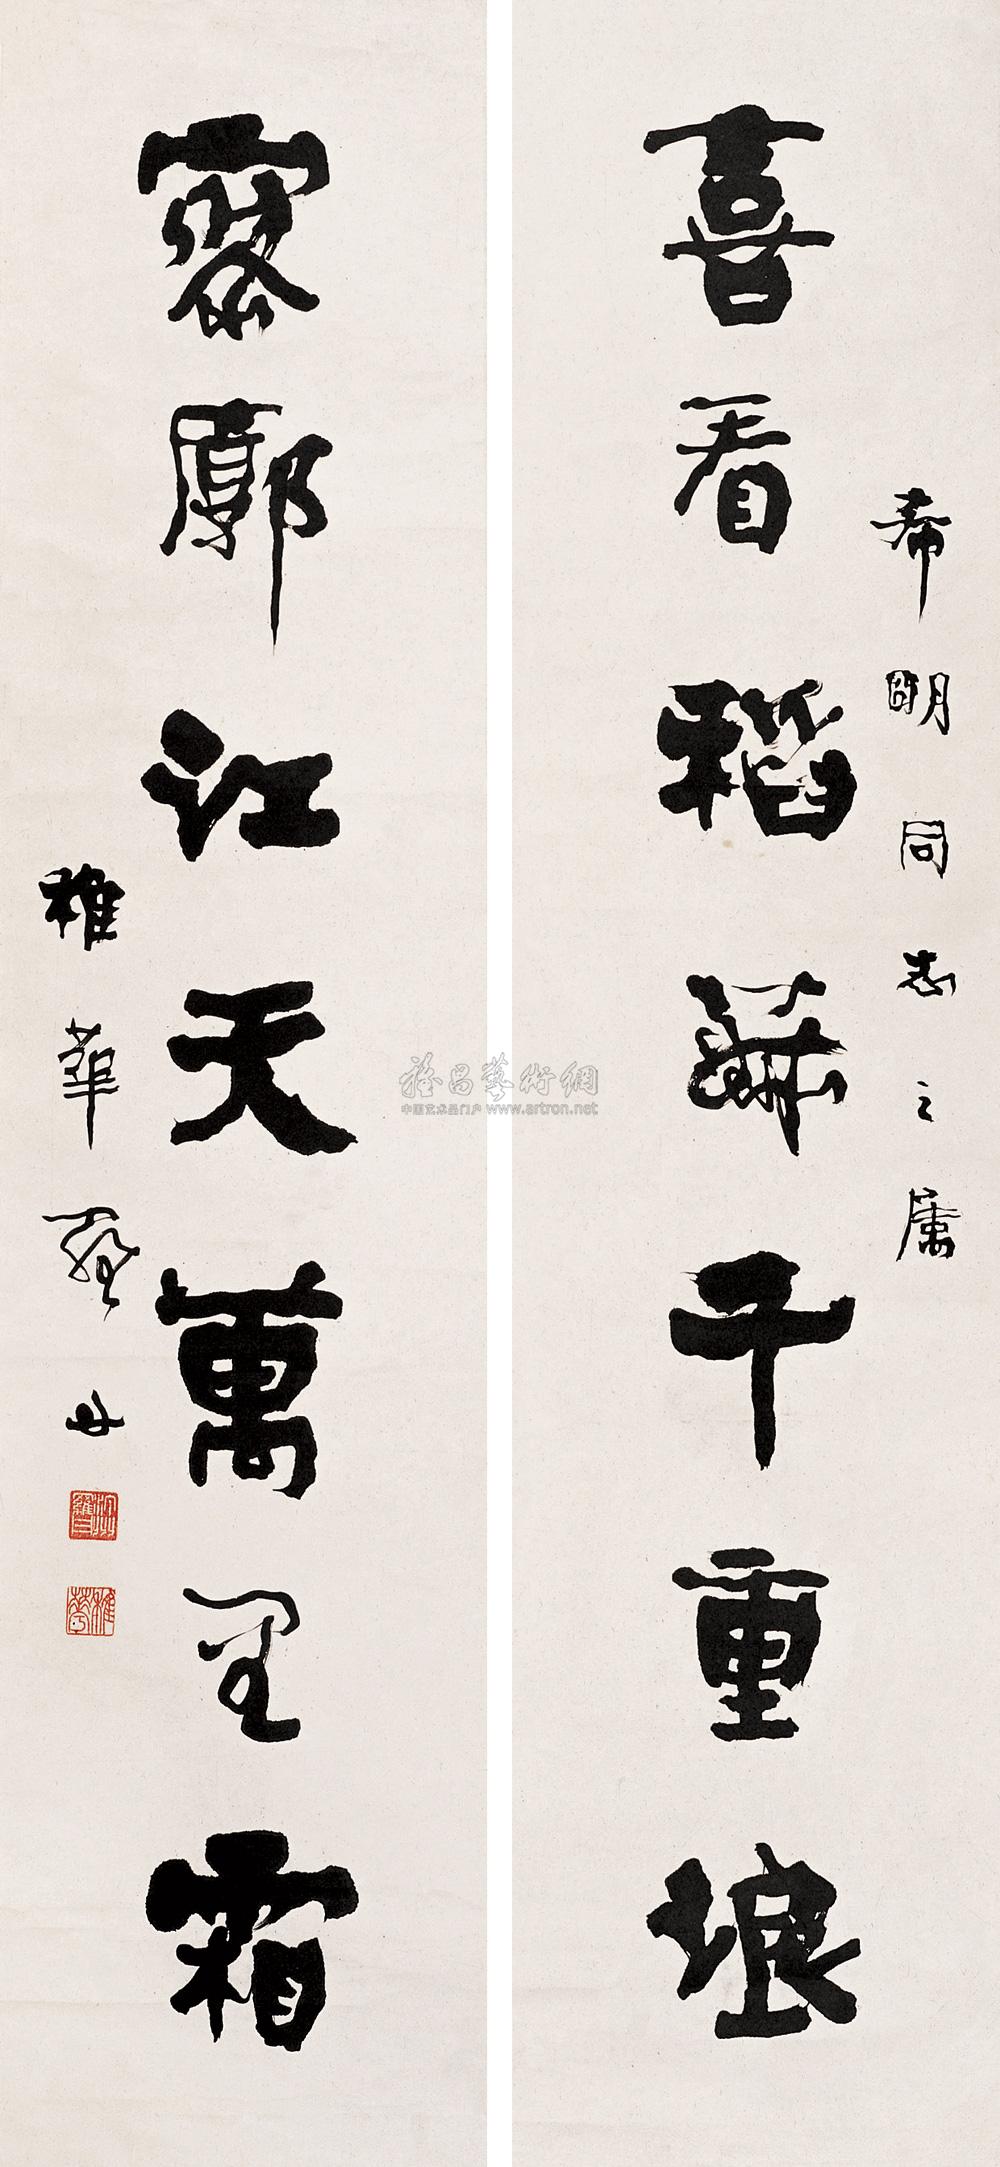 喜看稻菽千重浪
希明同志之属
寥廓江天萬里霜
稚華羅
雅昌藝術網
中国艺术品门户 www.artron.net